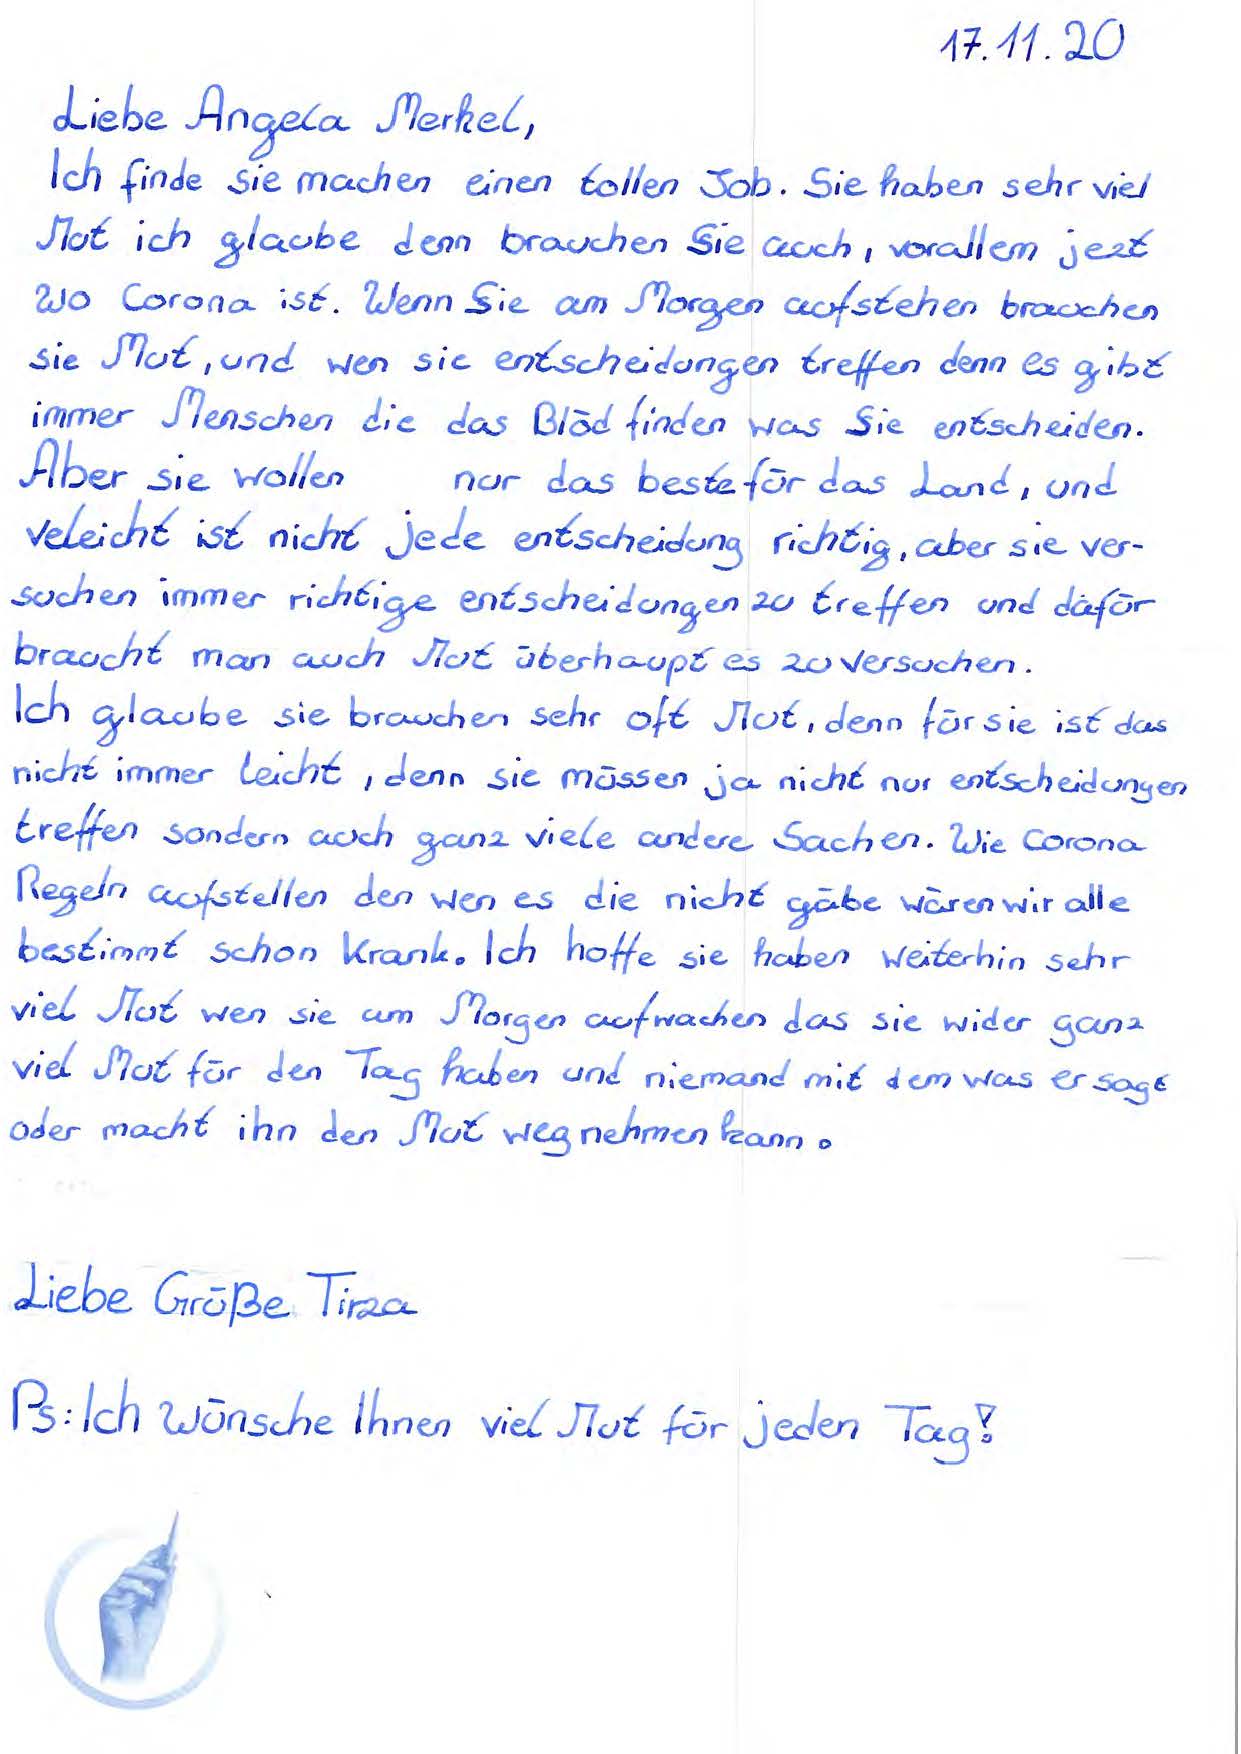 17.11.20
Liebe Angela Merkel,
Ich finde sie machen einen tollen Job. Sie haben sehr viel
Mut ich glaube denn brauchen Sie auch, vorallem jezt
wo Corona ist. Wenn Sie am Morgen aufstehen brauchen
sie Mut, und wen sie entscheidungen treffen denn es gibt
immer Menschen die das Blöd finden was Sie entscheiden.
Aber sie wollen nur das beste für das Land, und
veleicht ist nicht jede entscheidung richtig, aber sie ver-
suchen immer richtige entscheidungen zu treffen und dafür
braucht man auch Mut überhaupt es zu versuchen.
Ich glaube sie brauchen sehr oft Mut, denn für sie ist das
nicht immer leicht, denn sie müssen ja nicht nur entscheidungen
treffen sondern auch ganz viele andere Sachen. Wie Corona
Regeln aufstellen den wen es die nicht gäbe wären wir alle
bestimmt schon Krank. Ich hoffe sie haben weiterhin sehr
viel Mut wen sie am Morgen aufwachen das sie wider ganz
viel Mut für den Tag haben und niemand mit dem was er sagt
oder macht ihn den Mut wegnehmen kann.
Liebe Grüße Tirza
Ps: Ich wünsche Ihnen viel Mut für jeden Tag!